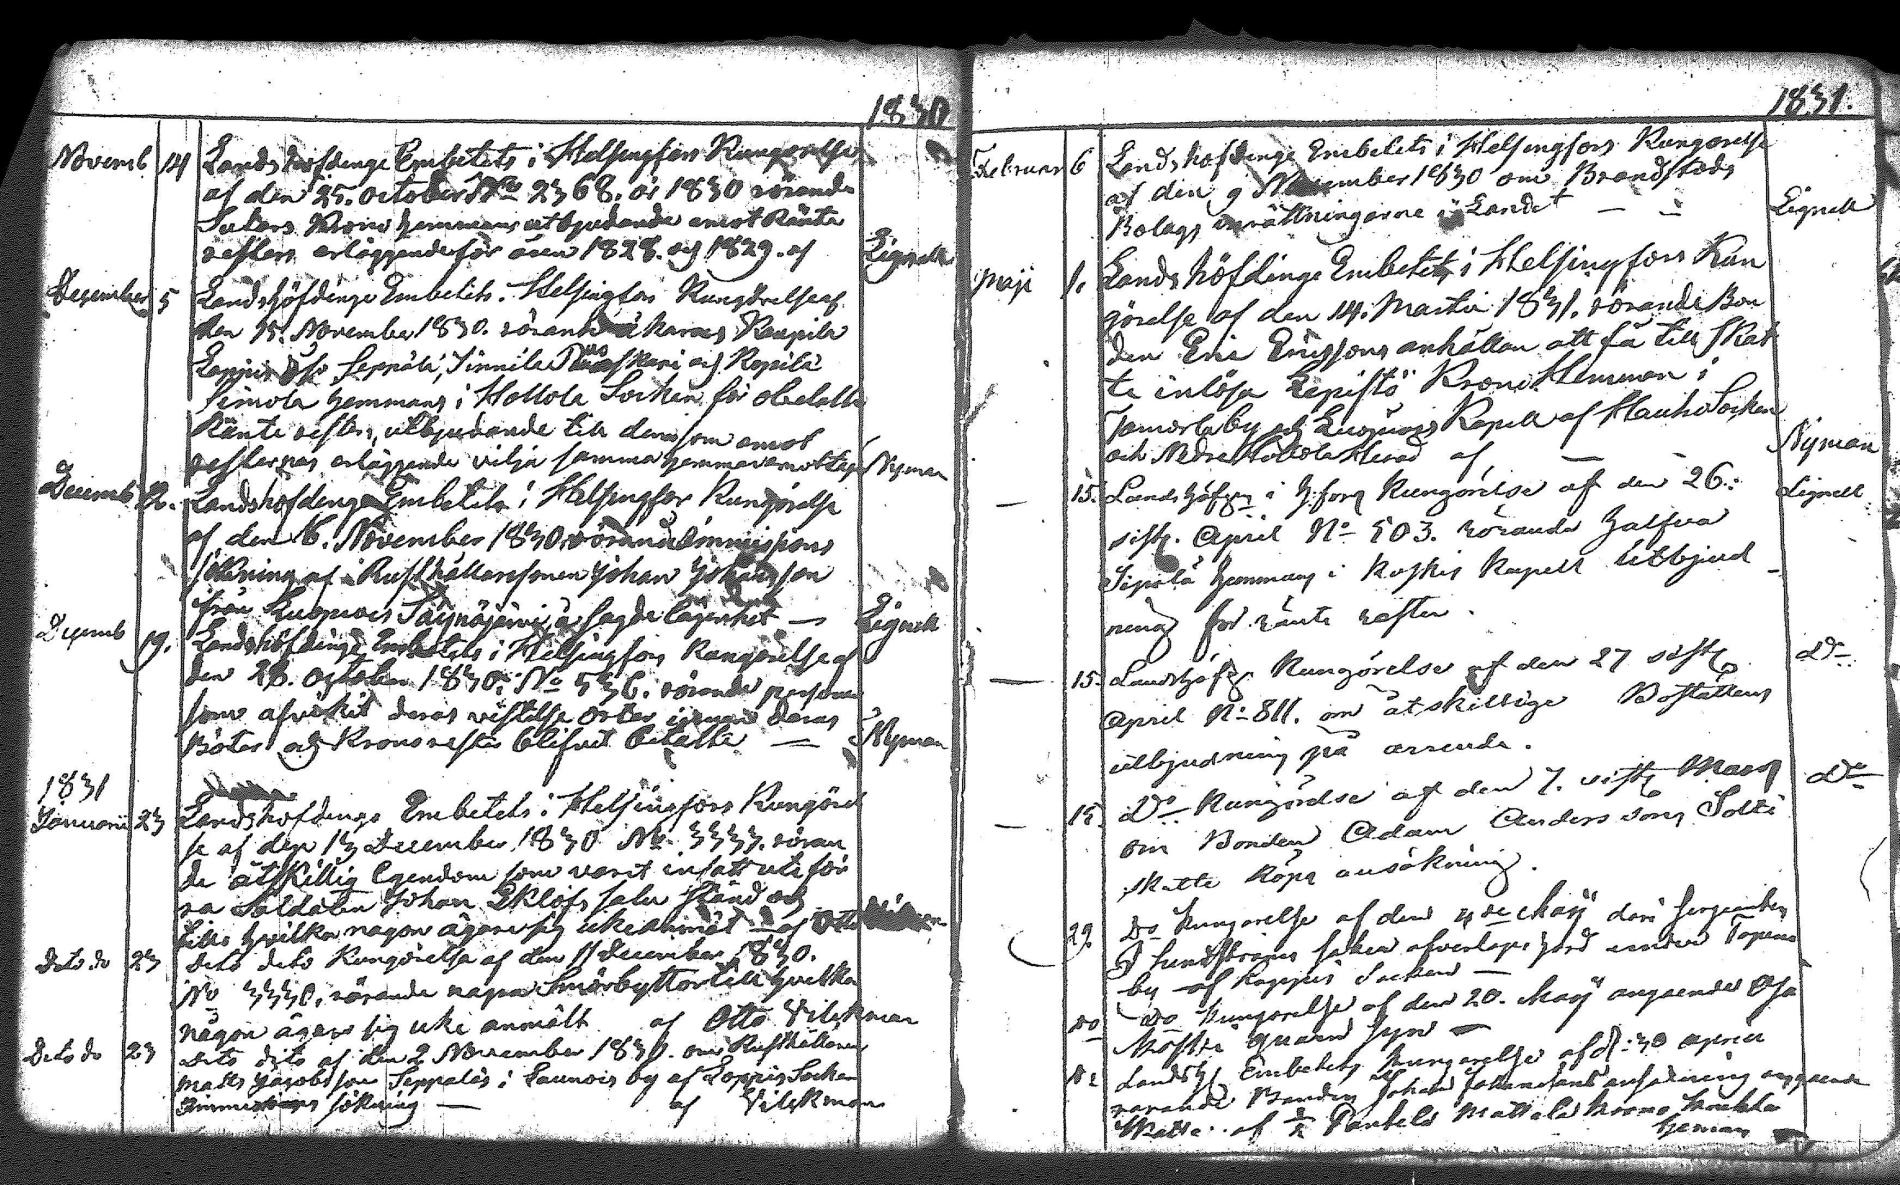 1830
Novemb 14 Landshöfdinge Embetets i Helsingfors Kungörelse
af den 25. October No 2368. år 1830 rörande
Krono hemmans utbjudande emot Ränte
resters erläggende för åren 1828. och 1829. af Lignell
December 5 Landshöfdinge Embetets i Helsingfors Kungörelse af
den 15. November 1830. rörande Raupila
Seppälä, Sinnilä och Ropilä
Simola hemmans i Hollola Socken för obetalte
Ränte rester, utbjudande till dem som emot
resternas erläggende vilja samma hemman emottaga Nyman
Decemb 12. Landshöfdinge Embetets i Helsingfors Kungörelse
af den 16. November 1830 rörande immissions
sökning af Rusthållaresonen Johan Johansson
från Kuopiois Säynäjärvi, å sagde lägenhet — Lignell
Decemb 19. Landshöfdinge Embetets i Helsingfors Kungörelse af
den 28. October 1830, No 536. rörande personer
som afvikit deras vistelse orter innan deras
Böter och Kronorester blifvit betalte — Nyman
1831
Januari 23 Landshöfdinge Embetets i Helsingfors Kungörel
se af den 13 December 1830 No 3333. röran
de åtskillig Egendom som varit insatt uti för
ra Soldaten Johan Eklöfs salu stånd och
till hvilka någon ägare sig icke anmält — af Otto
Dito do 23 dito dito Kungörelse af den 11 December 1830.
No 3330, rörande några Smörbyttor till hvilka
någon ägare sig icke anmält af Otto Vilckman
Dito do 23 Dito dito af den 2 November 1830. om Rusthållaren
Matts Jacobsson Seppäläs i Launois by af Loppis Socken
immissions sökning — af Vilckman
1831.
Februari 6 Landshöfdinge Embetets i Helsingfors Kungörelse
af den 9 November 1830 om Brandstods
Bolags inrättningarne i Landet — Lignell
Maji 1. Landshöfdinge Embetets i Helsingfors Kun
görelse af den 14. Martii 1831. rörande Bon
den Eric Ericssons anhållan att få till Skat
te inlösa Lepistö Krono Hemman i
by och Kapell af Hauho Socken
och Nedre Hollola Härad af — Nyman
— 15. Landshöfg i Hfors Kungörelse af den 26.
sistl. April No 503. rörande halfva
Sipilä hemmans i Koskis Kapell Utbjud
ning för ränte rester. Lignell
— 15. Landshöfg Kungörelse af den 27 sistl.
April No 811. om åtskillige Boställens
utbjudning på arrende. Do
— 15. Do Kungörelse af den 7. sistl. Mars
om Bonden Adam Anderssons Sotti
skatte köps ansökning. Do
29. Do Kungörelse af den 4de Maij
Sundströms saken jord under Topeno
by af Loppis Socken —
do Do Kungörelse af den 20. Maij angående
Koskis quarn syn —
do Landsh Embetets Kungörelse af d: 30 April
rörande Bonden Johan Johanssons ansökning angående
Skatte af ½ Mattala Krono
Heman